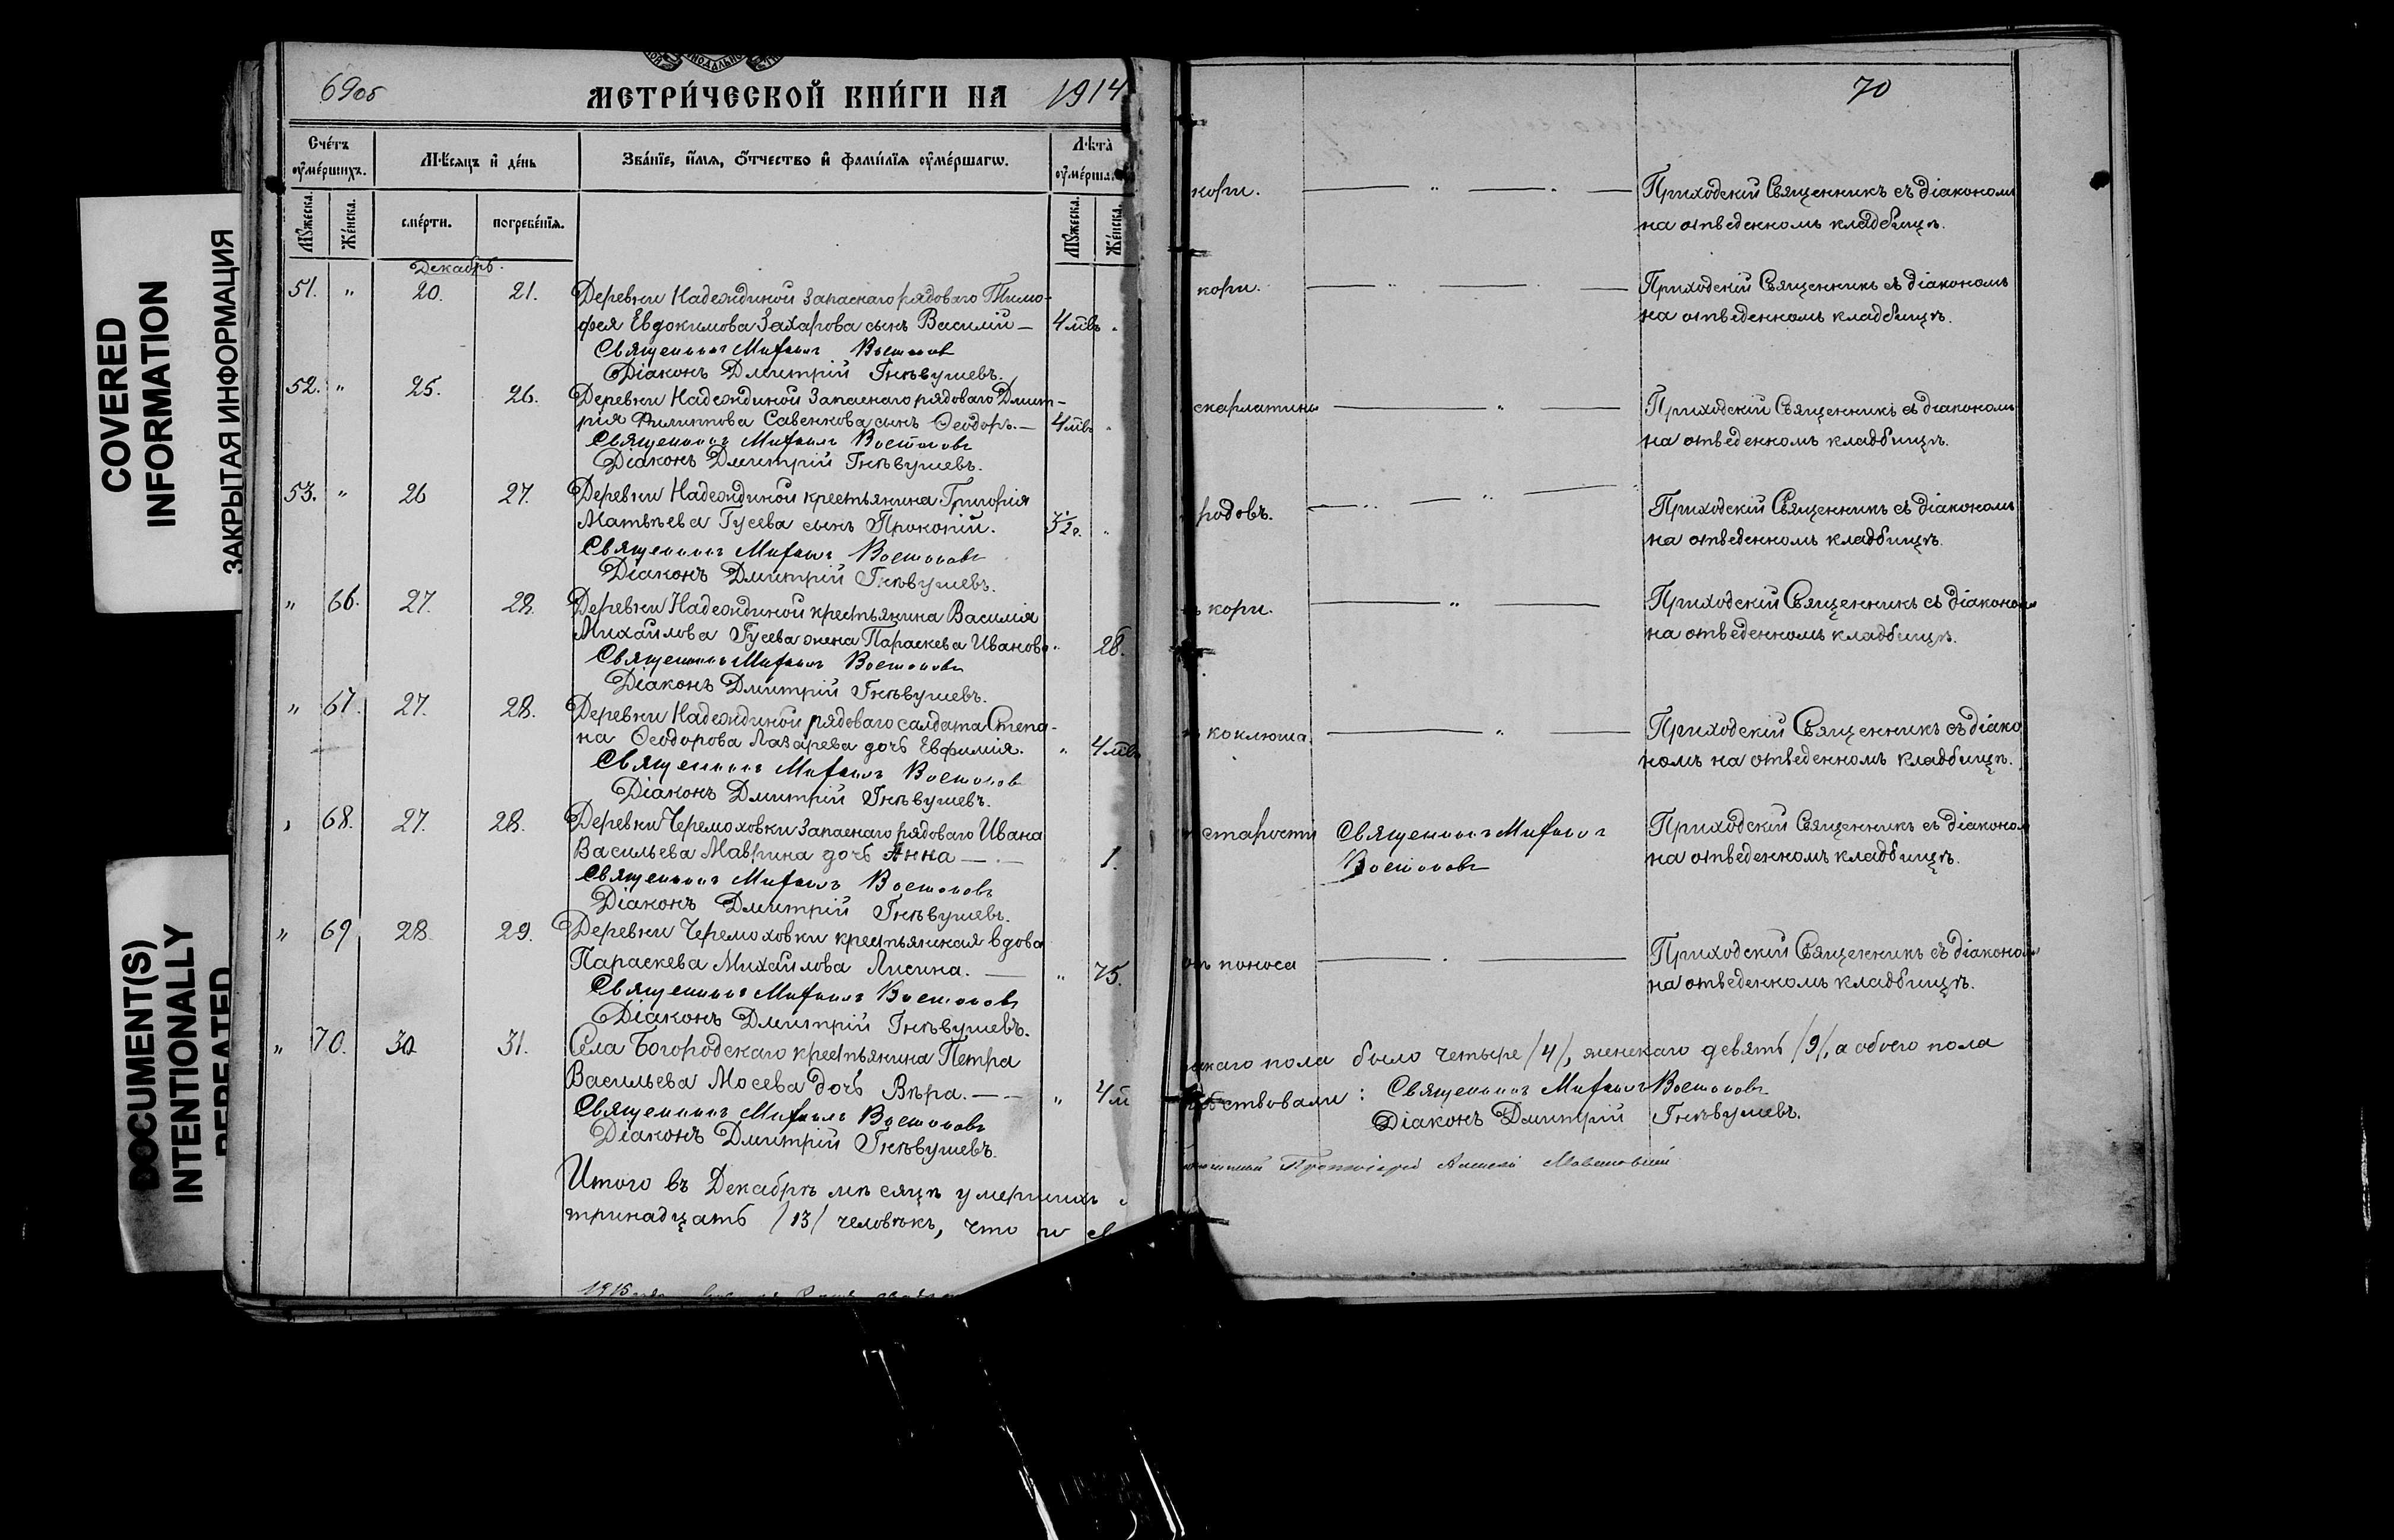 COVERED
INFORMATION
ЗАКРЫТАЯ ИНФОРМАЦИЯ
DOCUMENT(S)
INTENTIONALLY
REPEATED
69об
МЕТРИ́ЧЕСКОЙ КНИ́ГИ НА 1914
Сче́тъ оуме́ршихъ.
Мѣ́сяцъ и де́нь
Зва́нїе, и́мя, о́тчество и фами́лїя оуме́ршагѡ.
Лѣ́та оуме́рша
Му́жеска. Же́нска. сме́рти. погребе́нїя. Му́жеска. Же́нска.
Декабрь.
51. " 20. 21. Деревни Надеждиной запаснаго рядоваго Тимо-
фея Евдокимова Захарова сынъ Василій — 4 м̃въ
Священникъ Михаилъ Востоковъ
Діаконъ Дмитрій Гнѣвушевъ.
52. " 25. 26. Деревни Надеждиной запаснаго рядоваго Дмит-
рія Филиппова Савенкова сынъ Ѳеодоръ. — 4 м̃въ
Священникъ Михаилъ Востоковъ
Діаконъ Дмитрій Гнѣвушевъ.
53. " 26 27. Деревни Надеждиной крестьянина Григорія
Матвѣева Гусева сынъ Прокопій.
Священникъ Михаилъ Востоковъ
Діаконъ Дмитрій Гнѣвушевъ.
" 66. 27. 28. Деревни Надеждиной крестьянина Василія
Михайлова Гусева жена Параскева Иванова " 28.
Священникъ Михаилъ Востоковъ
Діаконъ Дмитрій Гнѣвушевъ.
" 67. 27. 28. Деревни Надеждиной рядоваго салдата Степа-
на Ѳеодорова Лазарева дочь Евфимія. " 4 м̃въ
Священникъ Михаилъ Востоковъ
Діаконъ Дмитрій Гнѣвушевъ.
" 68. 27. 28. Деревни Черемоховки запаснаго рядоваго Ивана
Васильева Маврина дочь Анна — " 1.
Священникъ Михаилъ Востоковъ
Діаконъ Дмитрій Гнѣвушевъ.
" 69 28 29. Деревни Черемоховки крестьянская вдова
Параскева Михайлова Лисина. — " 75.
Священникъ Михаилъ Востоковъ
Діаконъ Дмитрій Гнѣвушевъ.
" 70. 30 31. Села Богородскаго крестьянина Петра
Васильева Мосева дочь Вѣра. — " 4 м
Священникъ Михаилъ Востоковъ
Діаконъ Дмитрій Гнѣвушевъ.
Итого въ Декабрѣ мѣсяцѣ умершихъ
тринадцать /13/ человѣкъ, что и
1915
70
кори. — " — Приходскій Священникъ съ діакономъ
на отведенномъ кладбищѣ.
кори. — " — Приходскій Священникъ съ діакономъ
на отведенномъ кладбищѣ.
скарлатины — " — Приходскій Священникъ съ діакономъ
на отведенномъ кладбищѣ.
родовъ. — " — Приходскій Священникъ съ діакономъ
на отведенномъ кладбищѣ.
кори. — " — Приходскій Священникъ съ діакономъ
на отведенномъ кладбищѣ.
коклюша. — " — Приходскій Священникъ съ діако
номъ на отведенномъ кладбищѣ.
старости Священникъ Михаилъ Приходскій Священникъ съ діакономъ
Востоковъ на отведенномъ кладбищѣ.
отъ поноса — Приходскій Священникъ съ діакономъ
на отведенномъ кладбищѣ.
скаго пола было четыре /4/, женскаго девять /9/, а обоего пола
ствовали: Священникъ Михаилъ Востоковъ
Діаконъ Дмитрій Гнѣвушевъ.
Протоіерей Алексій